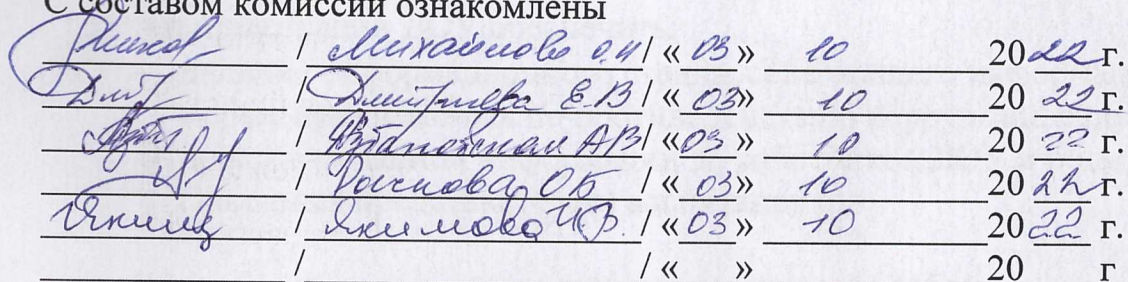 С составом комиссии ознакомлены
/ Михайлова О.И / « 03 » 10 20 22 г.
/ Дмитриева Е.В / « 03 » 10 20 22 г.
/ А.В / « 03 » 10 20 22 г.
/ Рачкова О.Б / « 03 » 10 20 22 г.
/ Якимова И.В. / « 03 » 10 20 22 г.
/ / « » 20 г